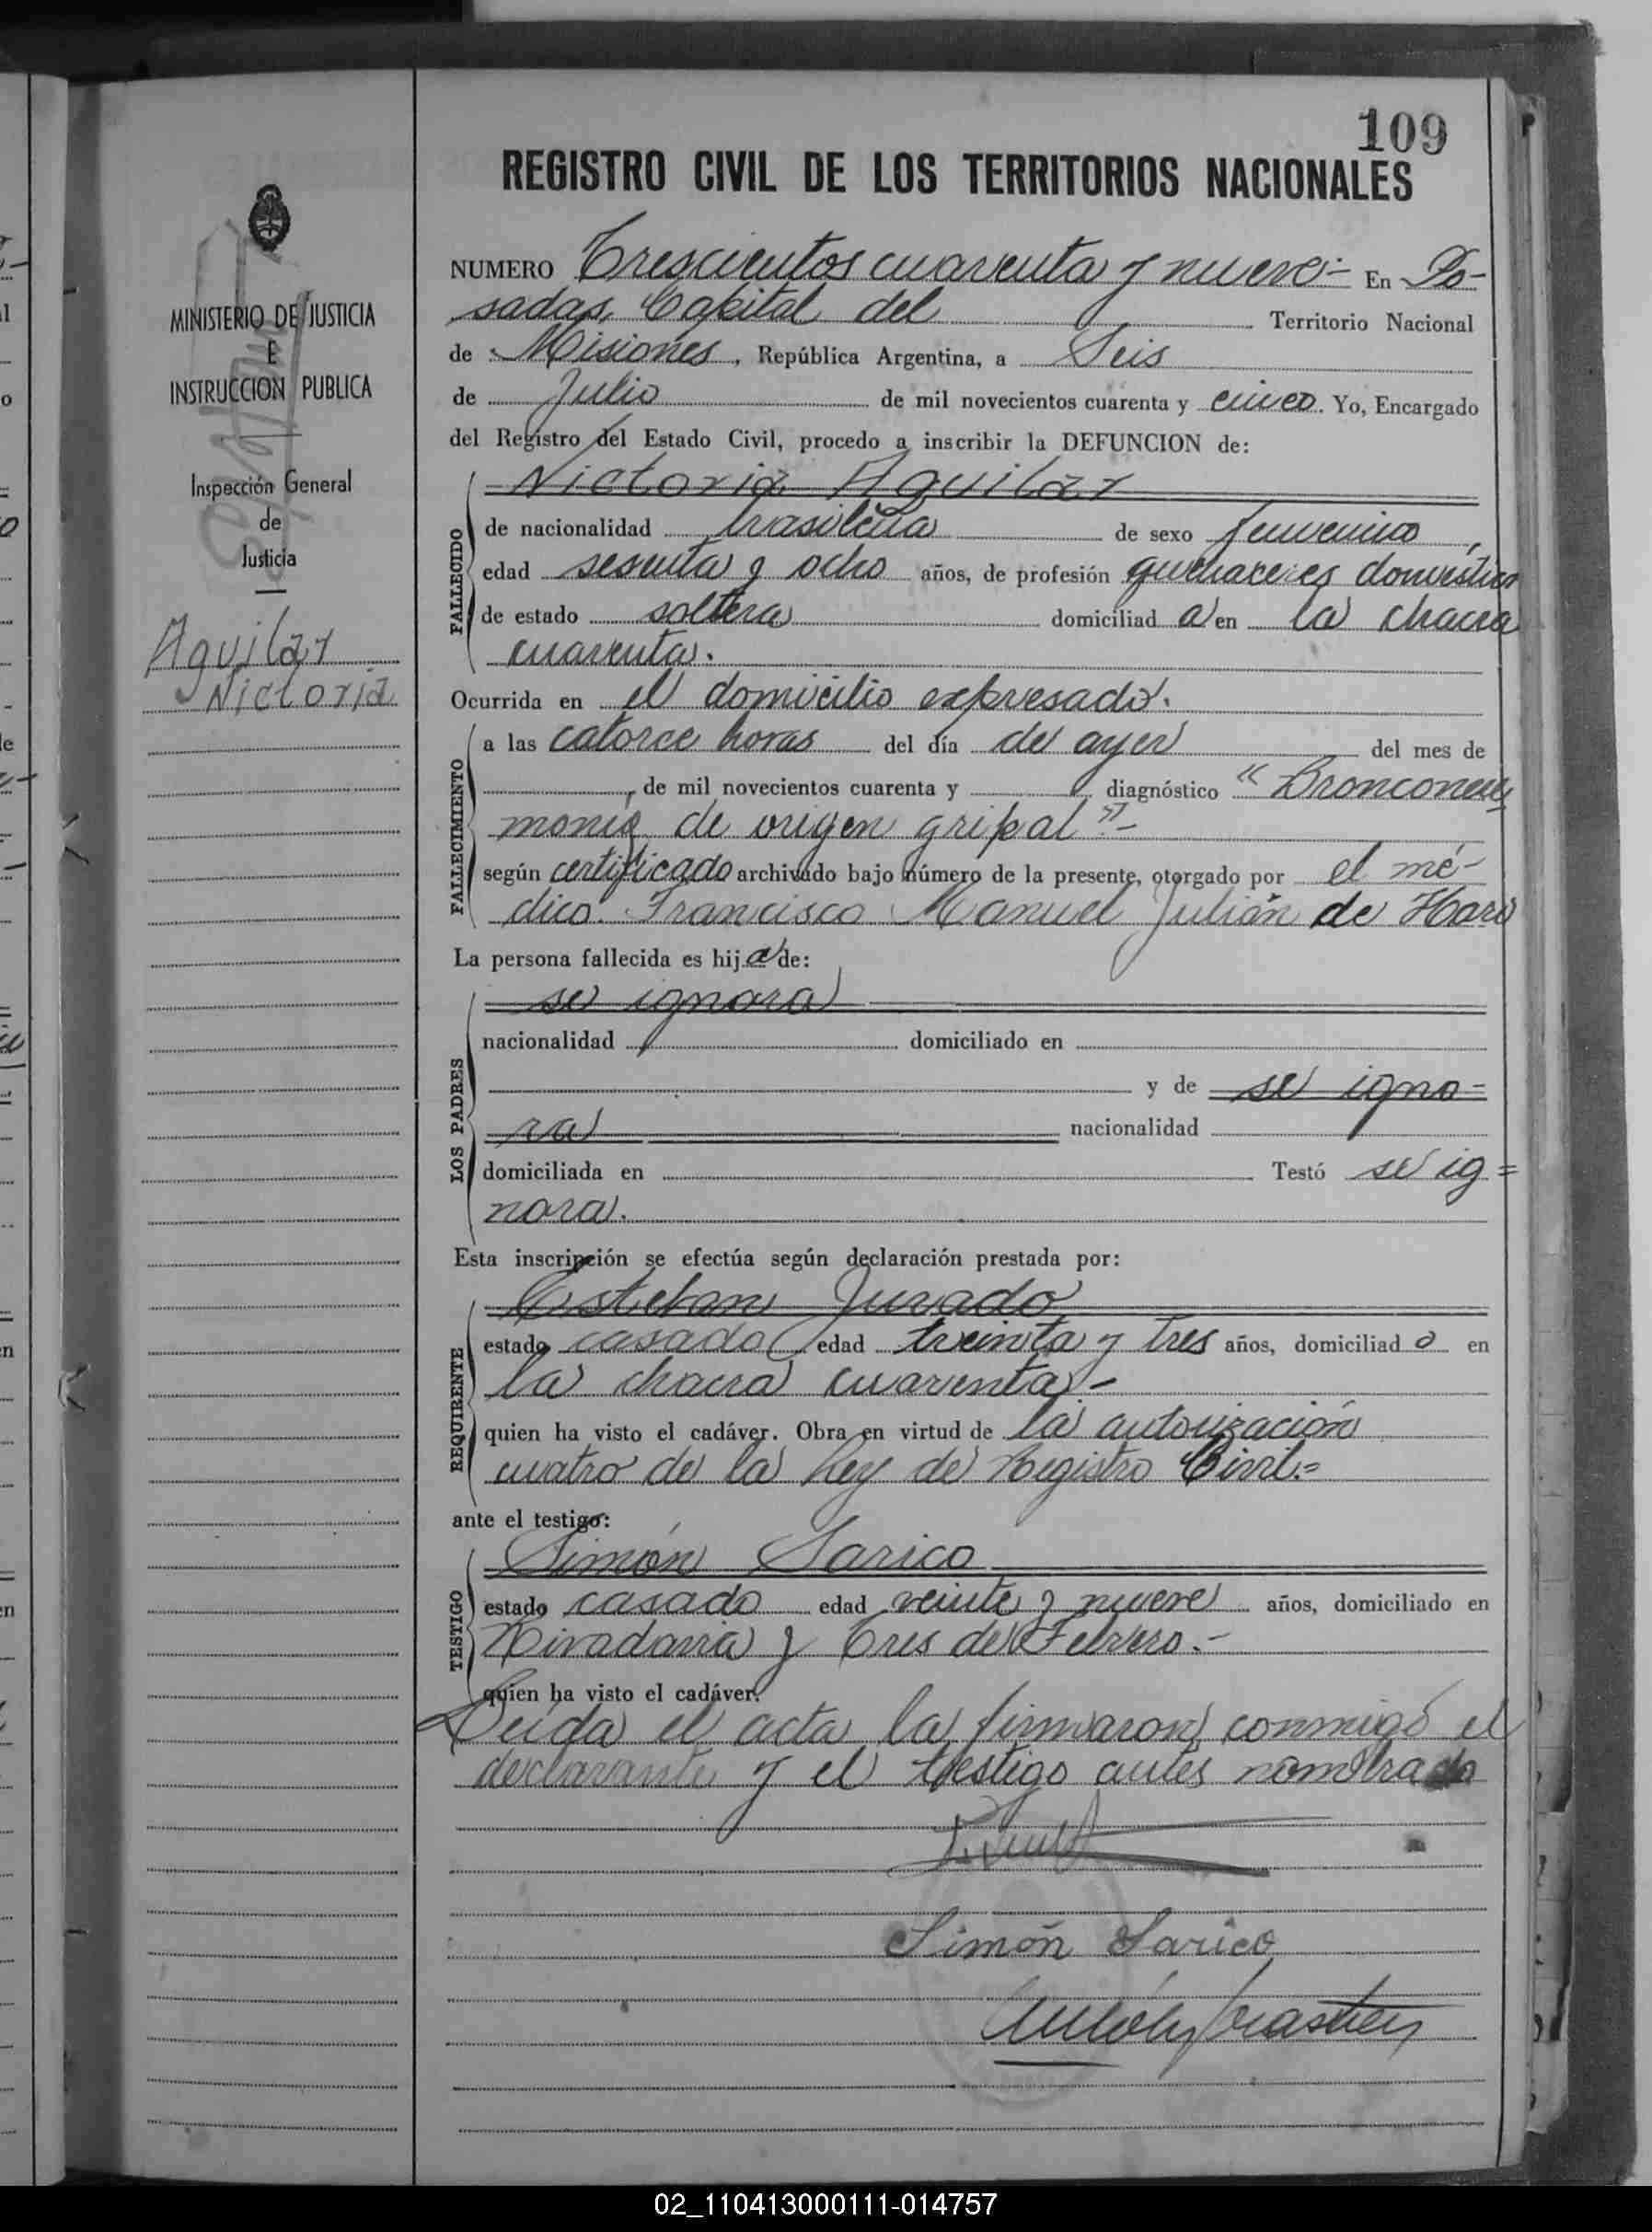 109
REGISTRO CIVIL DE LOS TERRITORIOS NACIONALES
MINISTERIO DE JUSTICIA
E
INSTRUCCION PUBLICA
Inspección General
de
Justicia
Aguilar
Victoria
NUMERO Trescientos cuarenta y nueve.- En Po-
sadas, Capital del Territorio Nacional
de Misiones, República Argentina, a Seis
de Julio de mil novecientos cuarenta y cinco. Yo, Encargado
del Registro del Estado Civil, procedo a inscribir la DEFUNCION de:
Victoria Aguilar
FALLECIDO
de nacionalidad brasileña de sexo femenino,
edad sesenta y ocho años, de profesión quehaceres domésticos
de estado soltera domiciliad a en la chacra
cuarenta.
Ocurrida en el domicilio expresado.
FALLECIMIENTO
a las catorce horas del día de ayer del mes de
, de mil novecientos cuarenta y diagnóstico "Bronconeu
monia de origen gripal".-
según certificado archivado bajo número de la presente, otorgado por el mé-
dico. Francisco Manuel Julián de Haro
La persona fallecida es hija de:
LOS PADRES
se ignora
nacionalidad domiciliado en
y de se igno=
ra nacionalidad
domiciliada en Testó se ig=
nora.
Esta inscripción se efectúa según declaración prestada por:
REQUIRENTE
Esteban Jurado
estado casado edad treinta y tres años, domiciliad o en
la chacra cuarenta.-
quien ha visto el cadáver. Obra en virtud de la autorización
cuatro de la Ley de Registro Civil.=
ante el testigo:
TESTIGO
Simón Sarico
estado casado edad veinte y nueve años, domiciliado en
Rivadavia y Tres de Febrero.-
quien ha visto el cadáver.
Leída el acta la firmaron conmigo el
declarante y el testigo antes nombrado
Simón Sarico
02_110413000111-014757